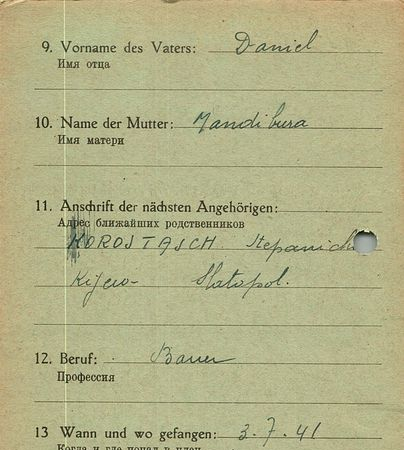 9. Vorname des Vaters: Daniel
Имя отца
10. Name der Mutter: Mandibura
Имя матери
11. Anschrift der nächsten Angehörigen:
Адрес ближайших родственников
KOROSTASCH Stepanich
Kijew- Slatopol.
12. Beruf: Bauer
Профессия
13 Wann und wo gefangen: 3.7.41
Когда и где попал в плен